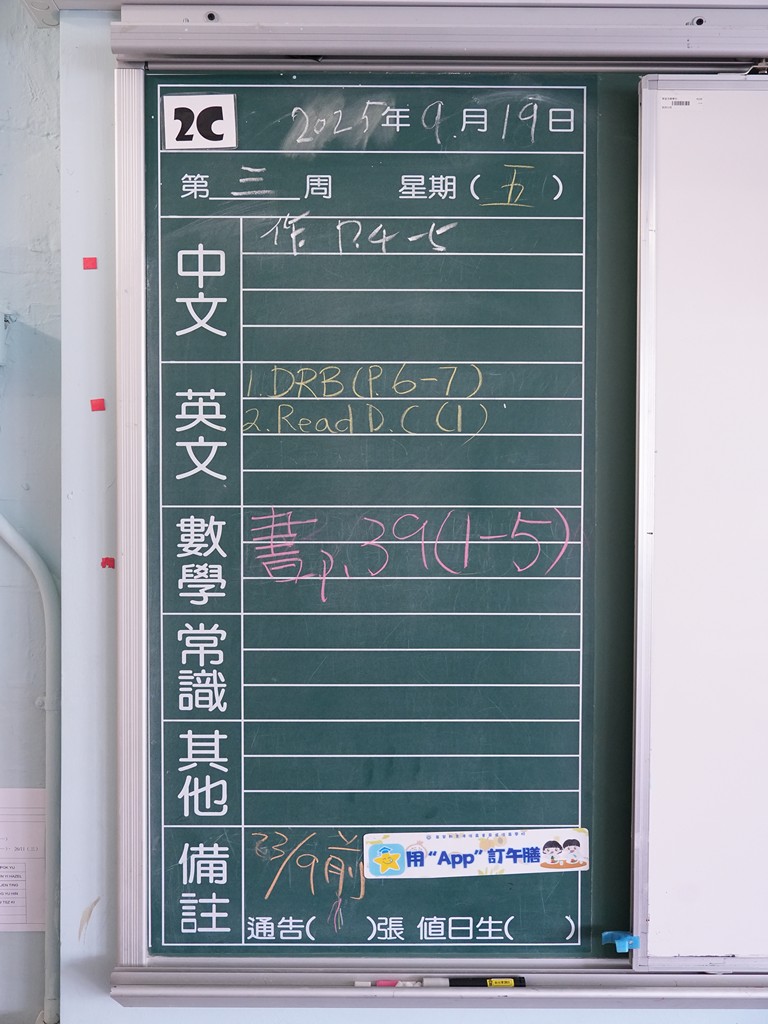 2C
2025年9月19日
第三周 星期(五)
中文
作 P.4-5
英文
1. DRB (P.6-7)
2. Read D.C (1)
數學
書p.39(1-5)
常識
其他
備註
23/9前
用“App”訂午膳
通告( )張 值日生( )